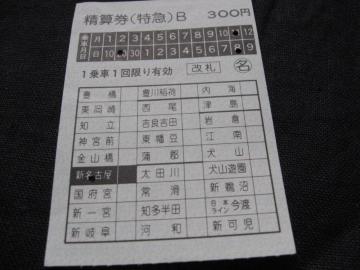 精算券(特急)B 300円
乗車月日 月 1 2 3 4 5 6 7 8 9 10 12
日 10 30 1 2 3 4 5 6 7 8 9
1乗車1回限り有効 改札 名
豊橋 豊川稲荷 内海
東岡崎 西尾 津島
知立 吉良吉田 岩倉
神宮前 東幡豆 江南
金山橋 蒲郡 犬山
新名古屋 太田川 犬山遊園
国府宮 常滑 新鵜沼
新一宮 知多半田 日本ライン今渡
新岐阜 河和 新可児